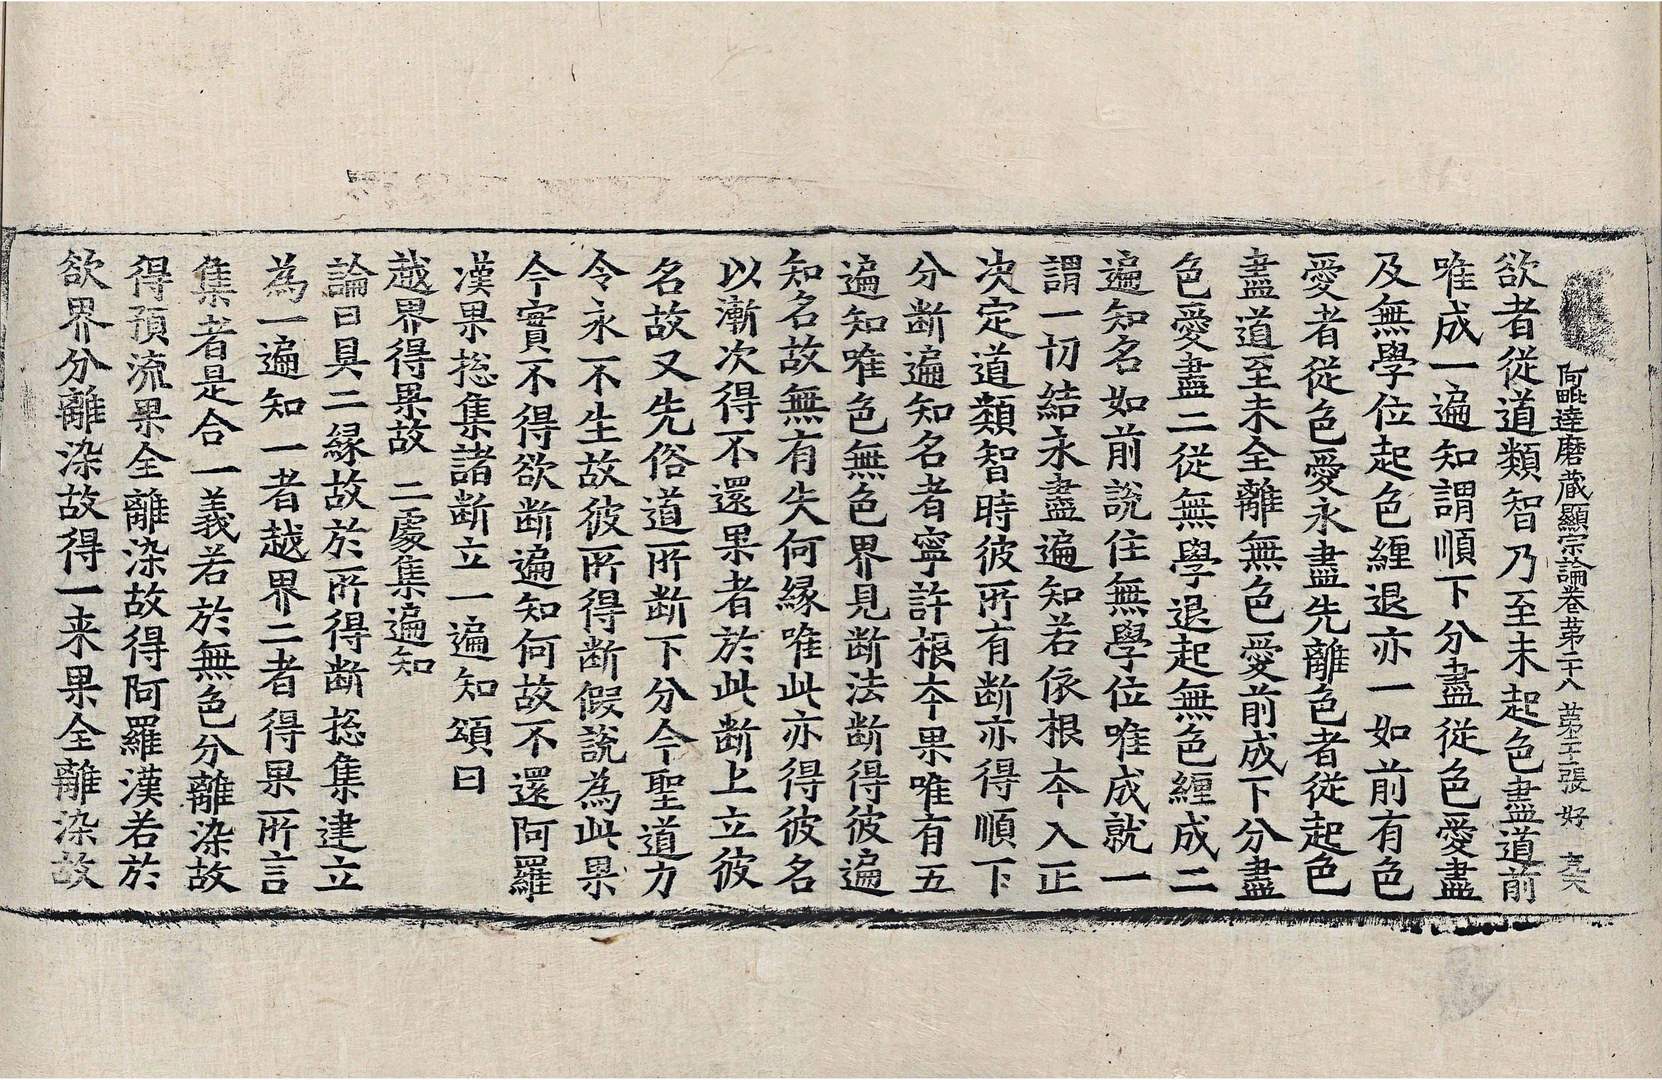 阿毗達磨藏顯宗論卷第二十八 第二十張 好
欲者從道類智乃至未起色盡道前
唯成一遍知謂順下分盡從色愛盡
及無學位起色纏退亦一如前有色
愛者從色愛永盡先離色者從起色
盡道至未全離無色愛前成下分盡
色愛盡二從無學退起無色纏成二
遍知名如前說住無學位唯成就一
謂一切結永盡遍知若依根本入正
決定道類智時彼所有斷亦得順下
分斷遍知名者寧許根本果唯有五
遍知唯色無色界見斷法斷得彼遍
知名故無有失何緣唯此亦得彼名
以漸次得不還果者於此斷上立彼
名故又先俗道所斷下分今聖道力
令永不生故彼所得斷假說為此果
今實不得欲斷遍知何故不還阿羅
漢果捴集諸斷立一遍知頌曰
越界得果故 二處集遍知
論曰具二緣故於所得斷捴集建立
為一遍知一者越界二者得果所言
集者是合一義若於無色分離染故
得預流果全離染故得阿羅漢若於
欲界分離染故得一来果全離染故